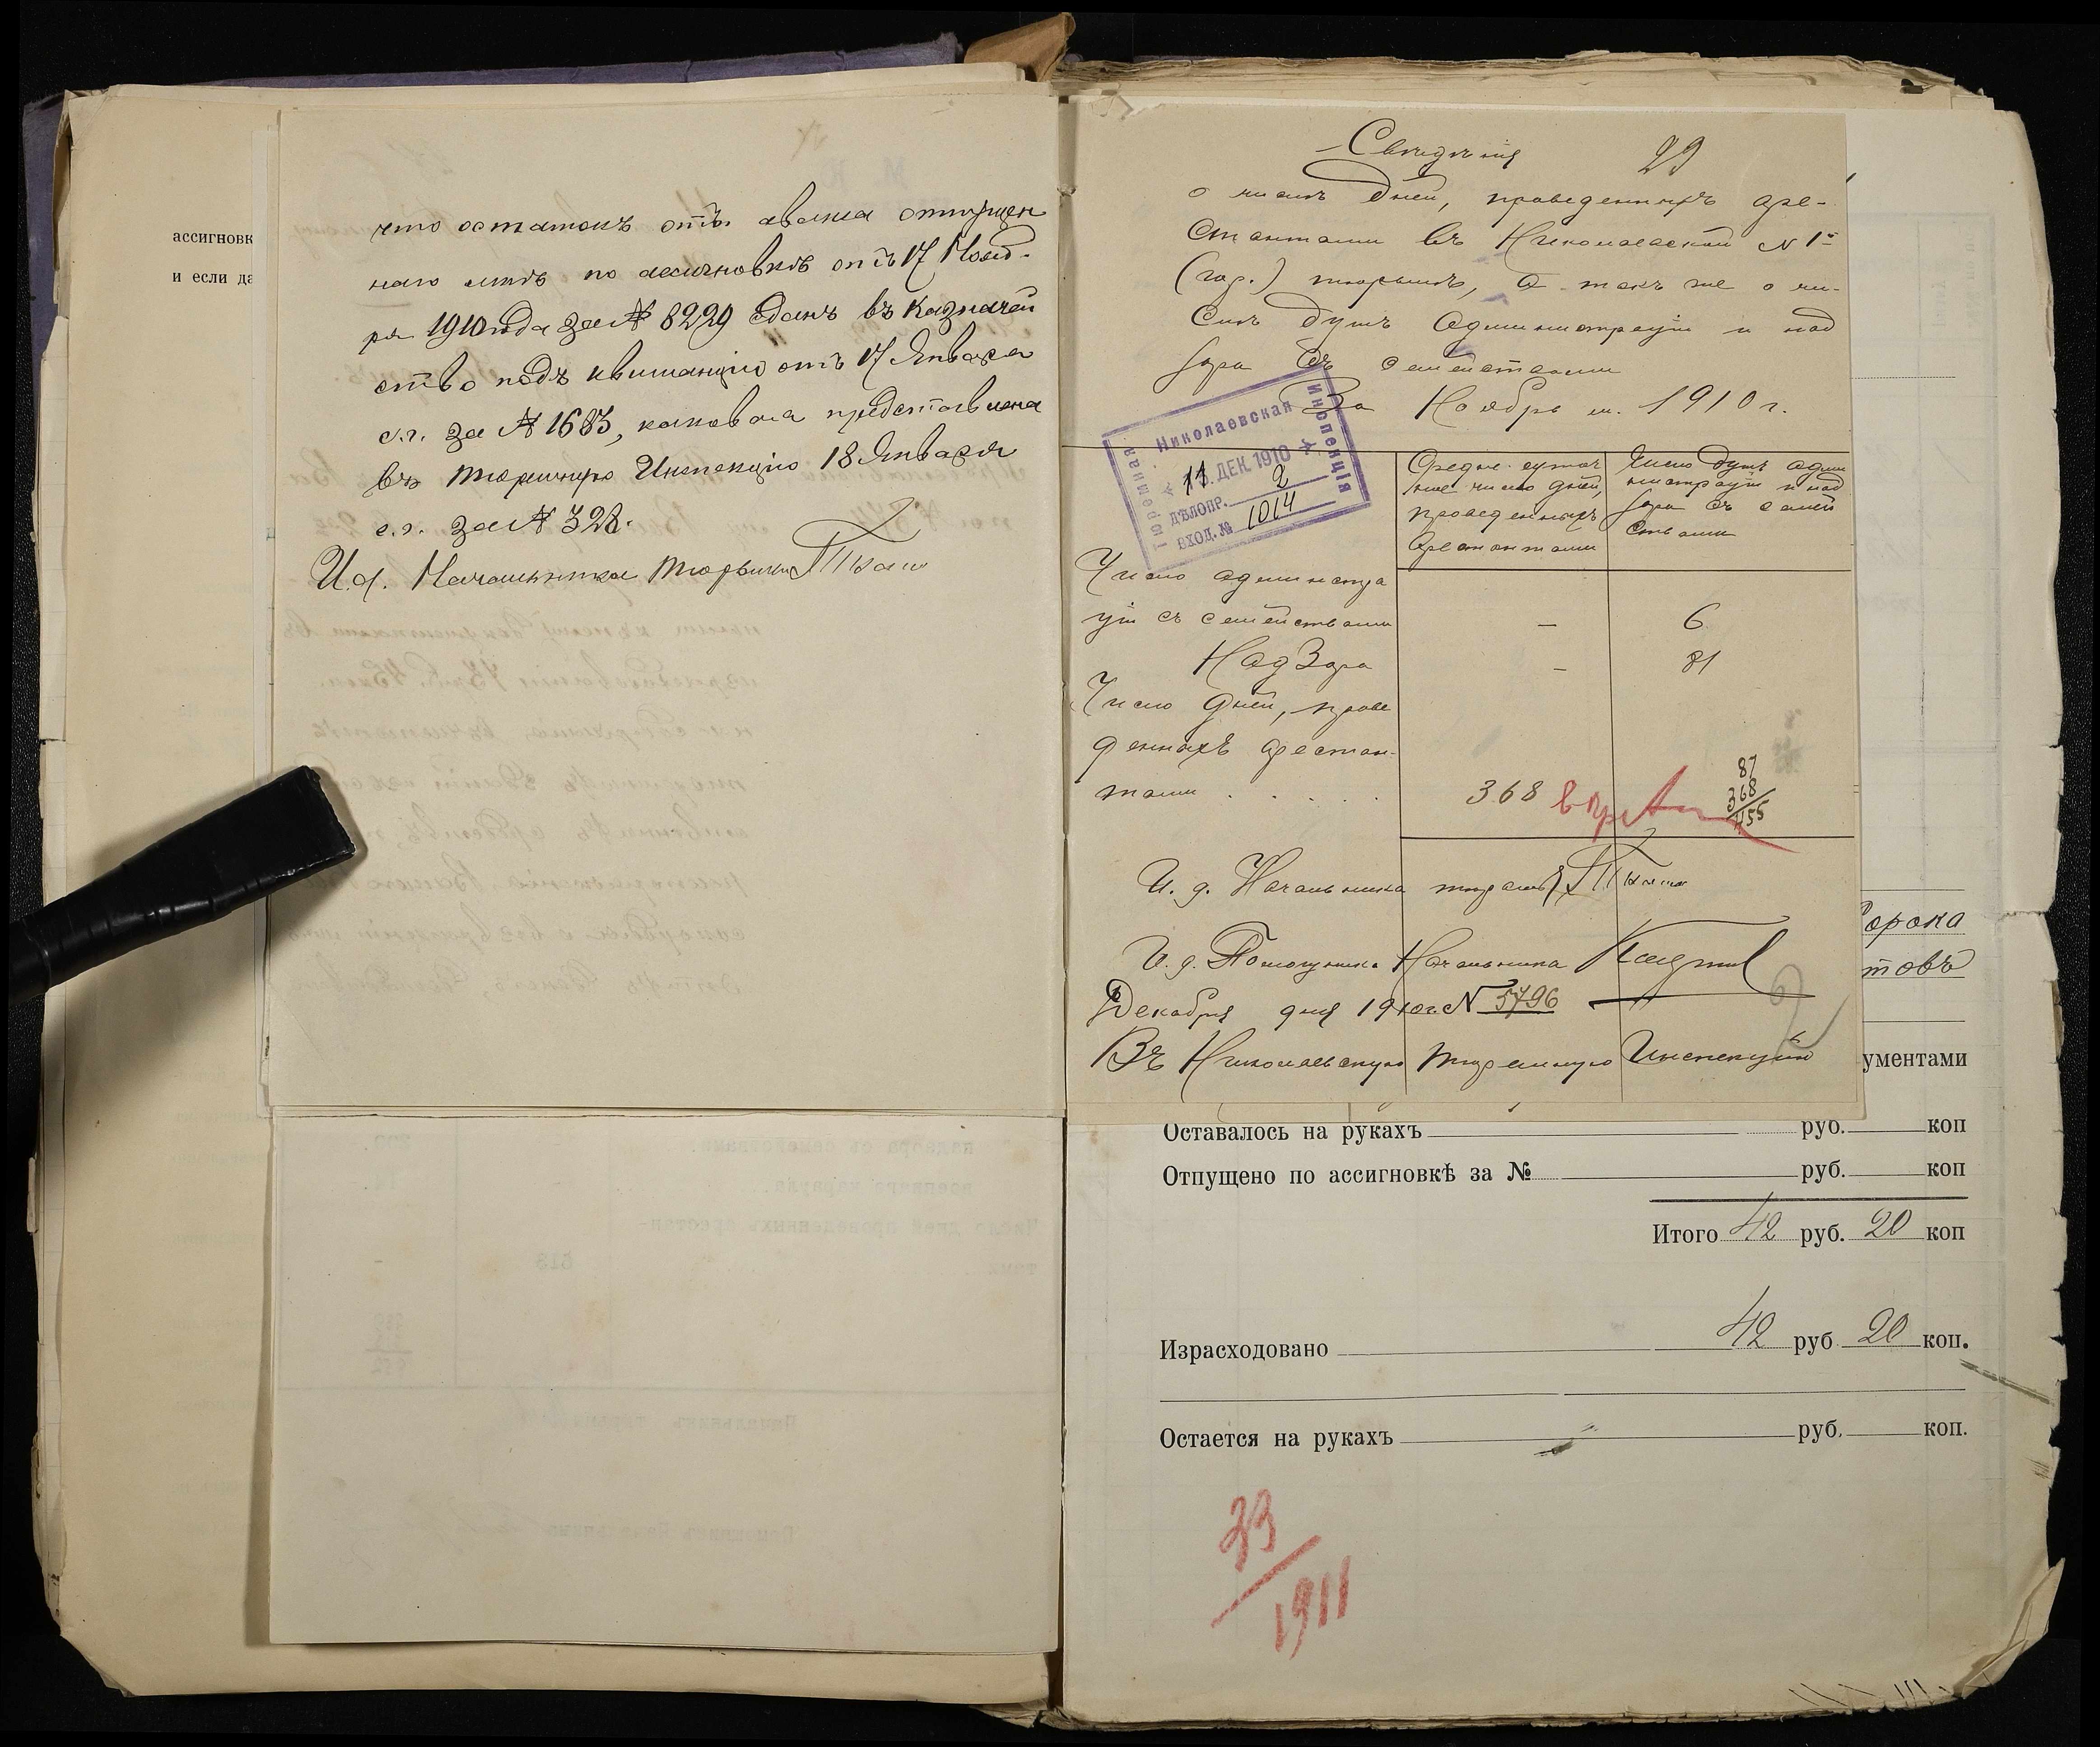 ассигновк
и если да
что остатокъ отъ аванса отпущен
наго мнѣ по ассигновкѣ отъ 17 Нояб-
ря 1910 года за № 8229 сданъ въ Казначей
ство подъ квитанцію отъ 17 Января
с.г. за № 1683, каковая представлена
въ Тюремную Инспекцію 18 Января
с.г. за № 328.
И.д. Начальника тюрьмы
Свѣдѣнія 29
о числѣ дней, проведенныхъ аре-
стантами въ Николаевской № 1й
(гор.) тюрьмѣ, а такъ же о чи-
слѣ душъ администраціи и над
зора съ семействами
За Ноябрь м. 1910 г.
Тюремная Николаевская Инспекція
13. ДЕК. 1910
ДѢЛОПР. 2
ВХОД. № 1014
Средне-суточ
ное число дней,
проведенныхъ
арестантами
Число душъ адми
нистраціи и над
зора съ семей
ствами
Число администра
ціи съ семействами — 6
Надзора — 81
Число дней, прове
денныхъ арестан-
тами . . . . . 368
87
368
455
И. д. Начальника тюрьмы
И. д. Помощника Начальника
Декабря дня 1910 г. № 5796
Въ Николаевскую Тюремную Инспекцію
Сорока
товъ
ументами
Оставалось на рукахъ руб. коп
Отпущено по ассигновкѣ за № руб. коп
Итого 42 руб. 20 коп
Израсходовано 42 руб 20 коп.
Остается на рукахъ руб. коп.
33
1911